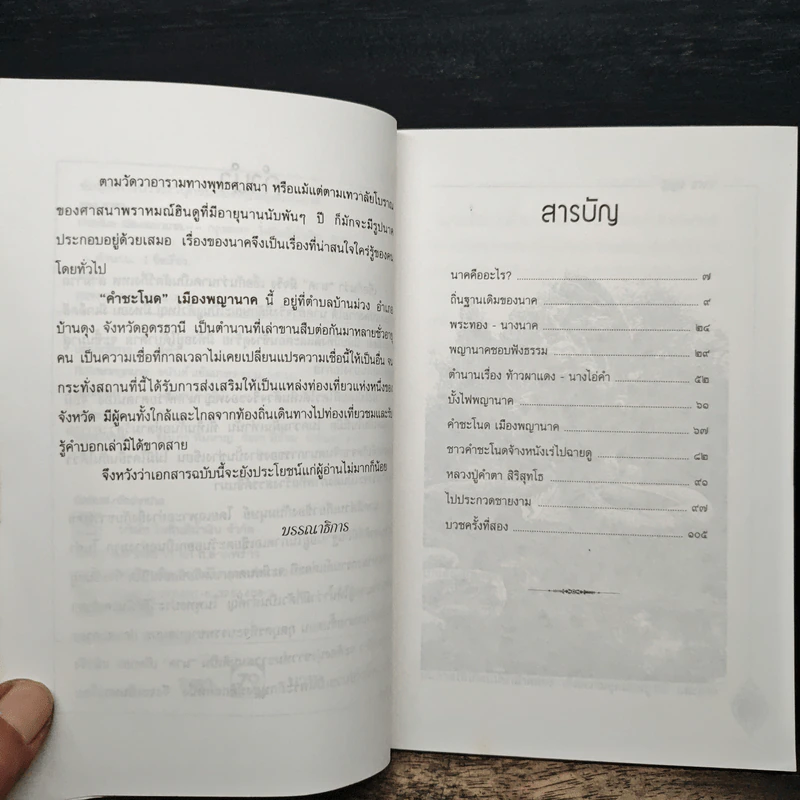 ตามวัดวาอารามทางพุทธศาสนา หรือแม้แต่ตามเทวาลัยโบราณ
ของศาสนาพราหมณ์ฮินดูที่มีอายุนานนับพันๆ ปี ก็มักจะมีรูปนาค
ประกอบอยู่ด้วยเสมอ เรื่องของนาคจึงเป็นเรื่องที่น่าสนใจใคร่รู้ของคน
โดยทั่วไป
"คำชะโนด" เมืองพญานาค นี้ อยู่ที่ตำบลบ้านม่วง อำเภอ
บ้านดุง จังหวัดอุดรธานี เป็นตำนานที่เล่าขานสืบต่อกันมาหลายชั่วอายุ
คน เป็นความเชื่อที่กาลเวลาไม่เคยเปลี่ยนแปรความเชื่อนี้ให้เป็นอื่น จน
กระทั่งสถานที่นี้ได้รับการส่งเสริมให้เป็นแหล่งท่องเที่ยวแห่งหนึ่งของ
จังหวัด มีผู้คนทั้งใกล้และไกลจากท้องถิ่นเดินทางไปท่องเที่ยวชมและ
รู้คำบอกเล่ามิได้ขาดสาย
จึงหวังว่าเอกสารฉบับนี้จะยังประโยชน์แก่ผู้อ่านไม่มากก็น้อย
บรรณาธิการ
สารบัญ
นาคคืออะไร? ๗
ถิ่นฐานเดิมของนาค ๙
พระทอง - นางนาค ๒๔
พญานาคชอบฟังธรรม ๒๙
ตำนานเรื่อง ท้าวผาแดง - นางไอ่คำ ๕๒
บั้งไฟพญานาค ๖๑
คำชะโนด เมืองพญานาค ๖๗
ชาวคำชะโนดจ้างหนังเร่ไปฉายดู ๘๒
หลวงปู่คำตา สิริสุทโธ ๙๑
ไปประกวดชายงาม ๙๗
บวชครั้งที่สอง ๑๐๕